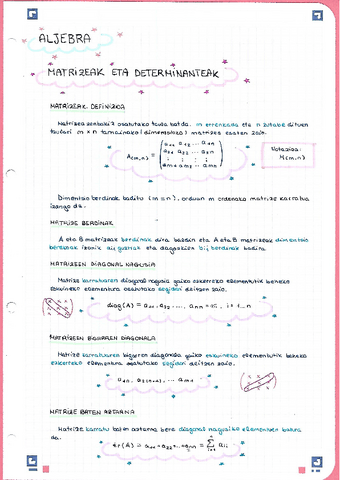 ALJEBRA
MATRIZEAK ETA DETERMINANTEAK
MATRIZEAK DEFINIZIOA
Matrizea zenbakiz osatutako taula bat da. m errenkada eta n zutabe dituen
taulari m x n tamainako (dimentsioko) matrizea esaten zaio.
A(m,n) = a₁₁ a₁₂ ... a₁n
a₂₁ a₂₂ ... a₂n
am1 am2 ... amn
Notazioa:
M(m,n)
Dimentsio berdinak baditu (m=n), orduan m ordenako matrize karratua
izango da.
MATRIZE BERDINAK
A eta B matrizeak berdinak dira baldin eta A eta B matrizeak dimentsio
berekoak izanik aij guztiak eta dagozkien bij berdinak badira.
MATRIZEEN DIAGONAL NAGUSIA
Matrize karratuaren diagonal nagusia goiko ezkerreko elementutik beheko
eskuineko elementura osatutako segidari deitzen zaio.
diag(A) = a₁₁, a₂₂, ..., ann
MATRIZEEN BIGARREN DIAGONALA
Matrize karratuaren bigarren diagonala goiko eskuineko elementutik beheko
ezkerreko elementura osatutako segidari deitzen zaio.
a₁n, a₂(n-1), ... an1
MATRIZE BATEN AZTARNA
Matrize karratu baten aztarna bere diagonal nagusiko elementuen batura
da.
tr(A) = a₁₁ + a₂₂ + ... + ann = Σ aii